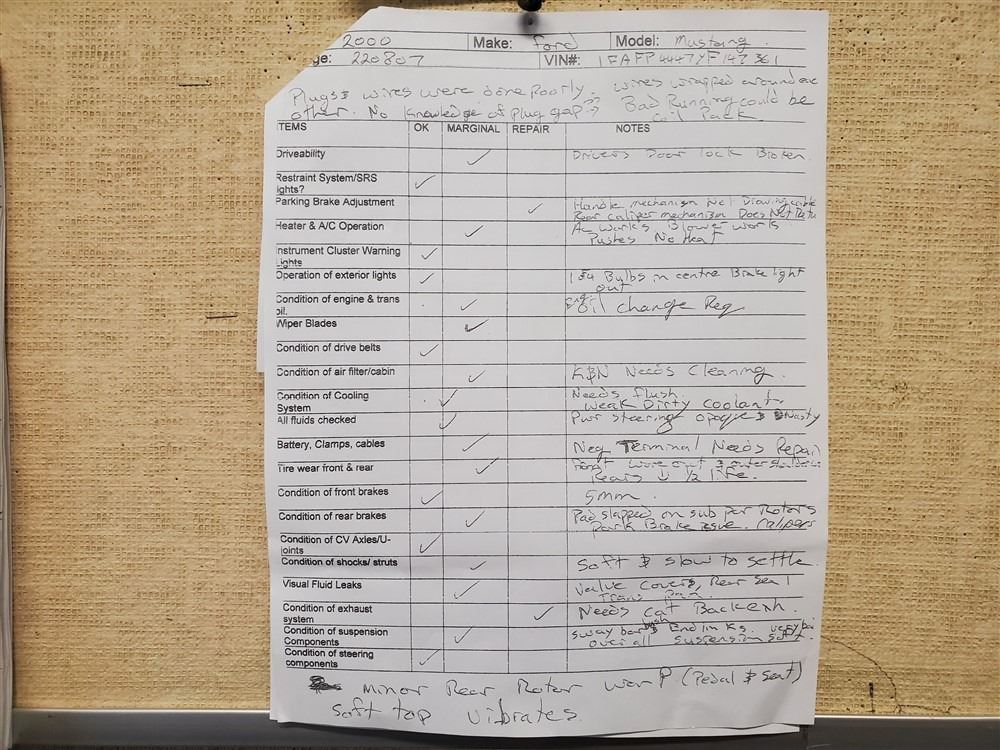 2000 Make: Ford Model: Mustang
ge: 220807 VIN#: 1FAFP4447YF147361
Plugs & wires were done Poorly. wires wrapped around
other. No Knowledge of plug gap?? Bad Running could be
coil Pack
ITEMS OK MARGINAL REPAIR NOTES
Driveability ✓ Drivers Door lock Broken.
Restraint System/SRS
ights? ✓
Parking Brake Adjustment ✓ Handle mechanism Not Drawing cable
Rear caliper mechanism Does Not
Heater & A/C Operation ✓ AC works Blower works
Pushes No Heat
Instrument Cluster Warning
Lights ✓
Operation of exterior lights ✓ Bulbs in centre Brake light
out
Condition of engine & trans
oil. ✓ oil change Req
Wiper Blades ✓
Condition of drive belts ✓
Condition of air filter/cabin ✓ K&N Needs Cleaning.
Condition of Cooling
System ✓ Needs flush.
weak Dirty coolant.
All fluids checked ✓ Pwr steering opaque & Nasty
Battery, Clamps, cables ✓ Neg Terminal Needs Repair
Tire wear front & rear ✓ front wore out & outer
Rears 1/2 life.
Condition of front brakes ✓ 5mm.
Condition of rear brakes ✓ Pad slapped on sub par Rotors
Park Brake issue. calipers
Condition of CV Axles/U-
joints ✓
Condition of shocks/ struts ✓ Soft & slow to settle
Visual Fluid Leaks ✓ Valve Covers, Rear Seal
Trans Pan.
Condition of exhaust
system ✓ Needs cat Back exh.
Condition of suspension
Components ✓ sway bar bush & End links. very
over all suspension soft.
Condition of steering
components ✓
Minor Rear Rotor warp (Pedal & Seat)
Soft top vibrates.